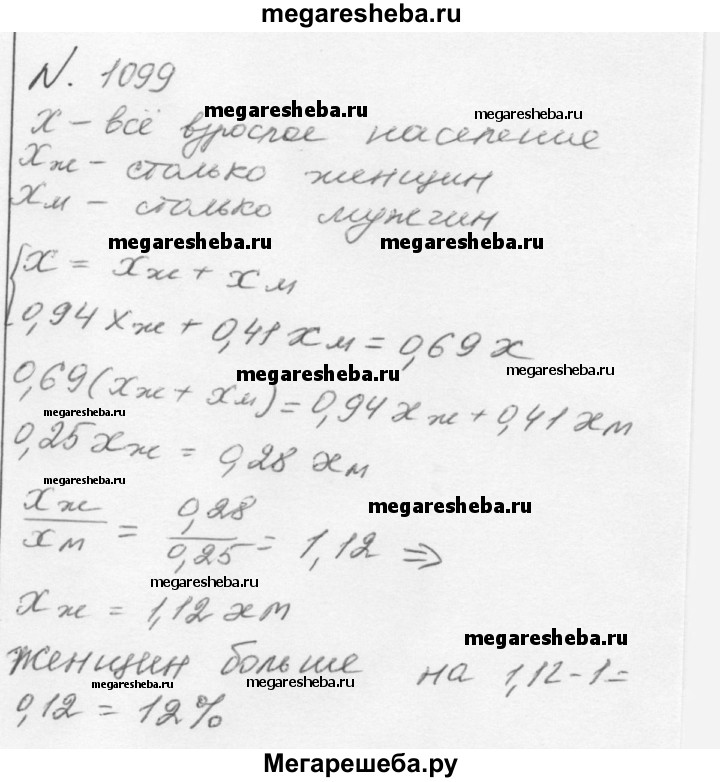 megaresheba.ru
N. 1099
megaresheba.ru megaresheba.ru
x – всё взрослое население
xж – столько женщин
xм – столько мужчин
megaresheba.ru megaresheba.ru
{ x = xж + xм
0,94 xж + 0,41 xм = 0,69 x
megaresheba.ru megaresheba.ru
0,69(xж + xм) = 0,94 xж + 0,41 xм
megaresheba.ru
0,25 xж = 0,28 xм
megaresheba.ru
xж/xм = 0,28/0,25 = 1,12 ⇒
megaresheba.ru
megaresheba.ru
xж = 1,12 xм
megaresheba.ru
женщин больше на 1,12 - 1 =
megaresheba.ru megaresheba.ru
0,12 = 12%
Мегарешеба.ру